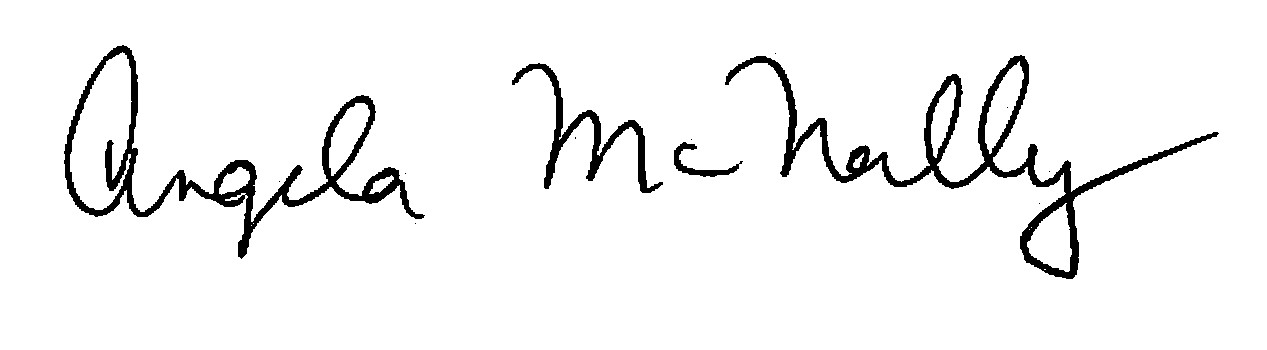 Angela McNally